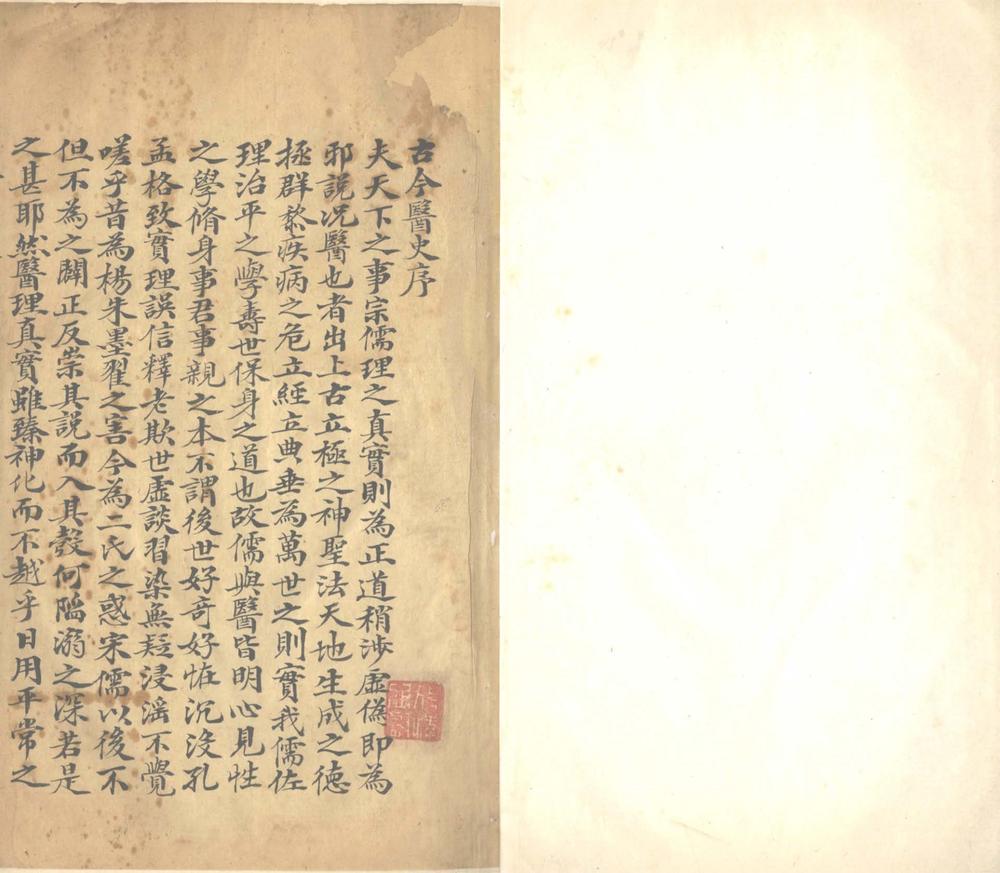 古今醫史序
夫天下之事宗儒理之真實則為正道稍涉虛偽即為
邪說况醫也者出上古立極之神聖法天地生成之德
拯群黎疾病之危立經立典垂為萬世之則實我儒佐
理治平之學壽世保身之道也故儒與醫皆明心見性
之學脩身事君事親之本不謂後世好奇好恠沉没孔
孟格致實理誤信釋老欺世虛談習染無疑浸滛不覺
嗟乎昔為楊朱墨翟之害今為二氏之惑宋儒以後不
但不為之闢正反崇其說而入其彀何陷溺之深若是
之甚耶然醫理真實雖臻神化而不越乎日用平常之